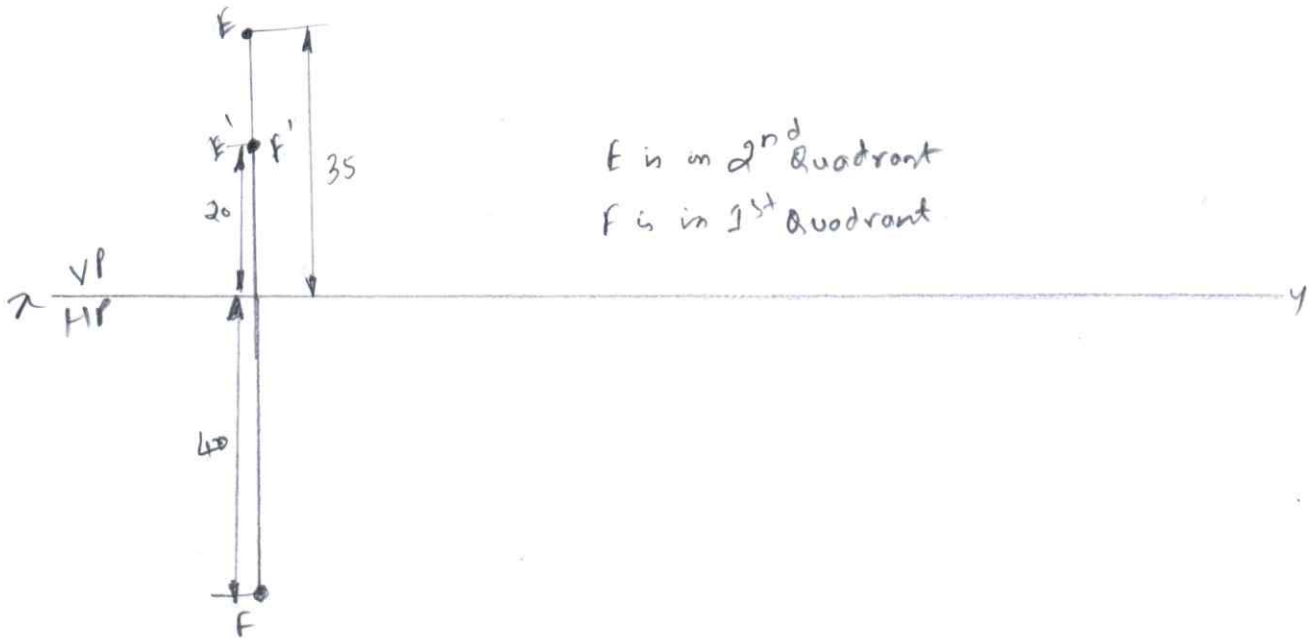 E
E' F'
35
20
E is in 2nd Quadrant
F is in 1st Quadrant
VP
x y
HP
40
F